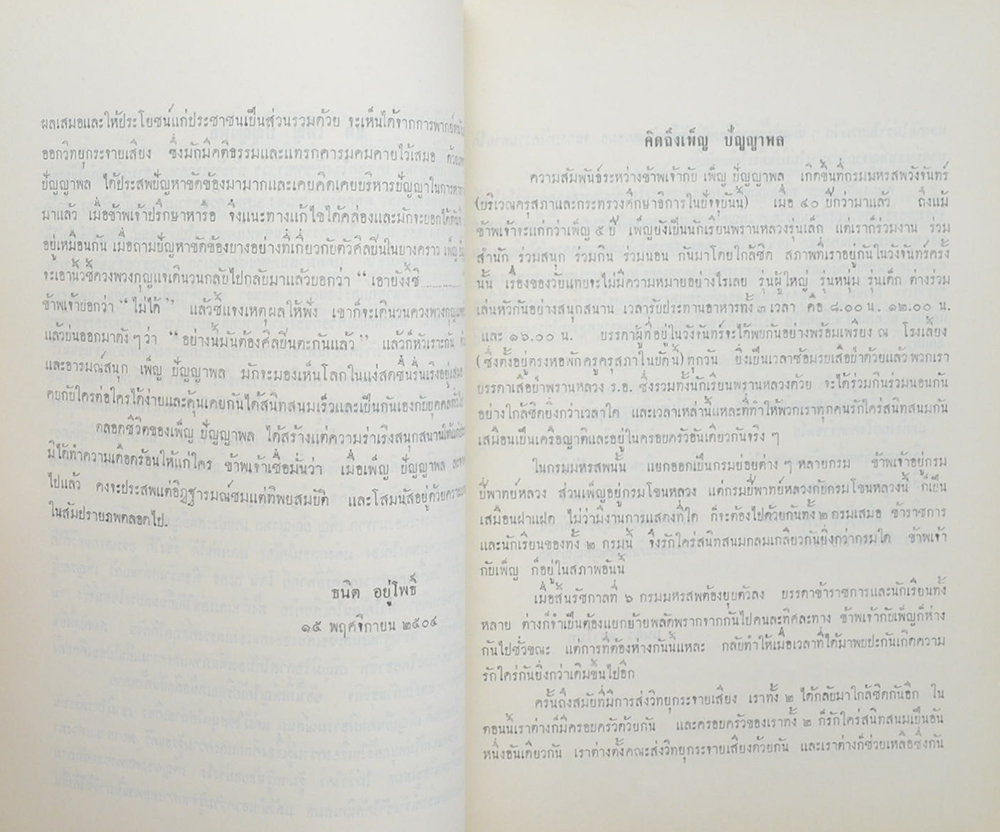 ผลเสมอและให้ประโยชน์แก่ประชาชนเป็นส่วนรวมด้วย จะเห็นได้จากการพากย์หนัง
ออกวิทยุกระจายเสียง ซึ่งมักมีคติธรรมและแทรกคารมคมคายไว้เสมอ
ปัญญาพล ได้ประสพปัญหาขัดข้องมามากและเคยคิดเคยบริหารปัญญาในการ
มาแล้ว เมื่อข้าพเจ้าปรึกษาหารือ จึงแนะทางแก้ไขได้คล่องและมักจะบอกได้
อยู่เหมือนกัน เมื่อถามปัญหาขัดข้องบางอย่างที่เกี่ยวกับตัวศิลปินในบางคราว เพ็ญ
จะเอานิ้วชี้ควงพวงกุญแจเดินวนกลับไปกลับมาแล้วบอกว่า “เอายังงี้ซิ
ข้าพเจ้าบอกว่า “ไม่ได้” แล้วชี้แจงเหตุผลให้ฟัง เขาก็จะเดินวนควงพวงกุญแจ
แล้วบ่นออกมาดังๆว่า “อย่างนี้มันต้องศิลปินตะกันแล้ว” แล้วก็หัวเราะกัน
และอารมณ์สนุก เพ็ญ ปัญญาพล มักจะมองเห็นโลกในแง่สดชื่นรื่นเริงอยู่เสมอ
คบกับใครต่อใครได้ง่ายและคุ้นเคยกันได้สนิทสนมเร็วและเป็นกันเองกับบุคคลทั่วไป
ตลอดชีวิตของเพ็ญ ปัญญาพล ได้สร้างแต่ความร่าเริงสนุกสนานให้แก่
มิได้ทำความเดือดร้อนให้แก่ใคร ข้าพเจ้าเชื่อมั่นว่า เมื่อเพ็ญ ปัญญาพล
ไปแล้ว คงจะประสพแต่อิฏฐารมณ์ชมแต่ทิพยสมบัติ และโสมนัสอยู่ด้วยความ
ในสัมปรายภพตลอดไป.
ธนิต อยู่โพธิ์
๑๕ พฤศจิกายน ๒๕๐๔
คิดถึงเพ็ญ ปัญญาพล
ความสัมพันธ์ระหว่างข้าพเจ้ากับ เพ็ญ ปัญญาพล เกิดขึ้นที่กรมมหรสพวังจันทร์
(บริเวณคุรุสภาและกระทรวงศึกษาธิการในปัจจุบันนี้) เมื่อ ๔๐ ปีกว่ามาแล้ว ถึงแม้
ข้าพเจ้าจะแก่กว่าเพ็ญ ๕ ปี เพ็ญยังเป็นนักเรียนพรานหลวงรุ่นเล็ก แต่เราก็ร่วมงาน ร่วม
สำนัก ร่วมสนุก ร่วมกิน ร่วมนอน กันมาโดยใกล้ชิด สภาพที่เราอยู่กันในวังจันทร์ครั้ง
นั้น เรื่องของวัยแทบจะไม่มีความหมายอย่างไรเลย รุ่นผู้ใหญ่ รุ่นหนุ่ม รุ่นเด็ก ต่างร่วม
เล่นหัวกันอย่างสนุกสนาน เวลารับประทานอาหารทั้ง ๓ เวลา คือ ๘.๐๐ น. ๑๒.๐๐ น.
และ ๑๖.๐๐ น. บรรดาผู้ที่อยู่ในวังจันทร์จะได้พบกันอย่างพร้อมเพรียง ณ โรงเลี้ยง
(ซึ่งตั้งอยู่ตรงหอพักครูคุรุสภาในบัดนี้) ทุกวัน ยิ่งเป็นเวลาซ้อมรบเสือป่าด้วยแล้วพวกเรา
บรรดาเสือป่าพรานหลวง ร.อ. ซึ่งรวมทั้งนักเรียนพรานหลวงด้วย จะได้ร่วมกินร่วมนอนกัน
อย่างใกล้ชิดยิ่งกว่าเวลาใด และเวลาเหล่านี้แหละที่ทำให้พวกเราทุกคนรักใคร่สนิทสนมกัน
เสมือนเป็นเครือญาติและอยู่ในครอบครัวอันเดียวกันจริง ๆ
ในกรมมหรสพนั้น แยกออกเป็นกรมย่อยต่าง ๆ หลายกรม ข้าพเจ้าอยู่กรม
ปี่พาทย์หลวง ส่วนเพ็ญอยู่กรมโขนหลวง แต่กรมปี่พาทย์หลวงกับกรมโขนหลวงนี้ ก็เป็น
เสมือนฝาแฝด ไม่ว่ามีงานการแสดงที่ใด ก็จะต้องไปด้วยกันทั้ง ๒ กรมเสมอ ข้าราชการ
และนักเรียนของทั้ง ๒ กรมนี้ จึงรักใคร่สนิทสนมกลมเกลียวกันยิ่งกว่ากรมใด ข้าพเจ้า
กับเพ็ญ ก็อยู่ในสภาพอันนี้
เมื่อสิ้นรัชกาลที่ ๖ กรมมหรสพต้องยุบตัวลง บรรดาข้าราชการและนักเรียนทั้ง
หลาย ต่างก็จำเป็นต้องแยกย้ายพลัดพรากจากกันไปคนละทิศละทาง ข้าพเจ้ากับเพ็ญก็ห่าง
กันไปชั่วขณะ แต่การที่ต้องห่างกันนั้นแหละ กลับทำให้เมื่อเวลาที่ได้มาพบปะกันเกิดความ
รักใคร่กันยิ่งกว่าเดิมขึ้นไปอีก
ครั้นถึงสมัยที่มีการส่งวิทยุกระจายเสียง เราทั้ง ๒ ได้กลับมาใกล้ชิดกันอีก ใน
ตอนนี้เราต่างก็มีครอบครัวด้วยกัน และครอบครัวของเราทั้ง ๒ ก็รักใคร่สนิทสนมเป็นอัน
หนึ่งอันเดียวกัน เราต่างตั้งคณะส่งวิทยุกระจายเสียงด้วยกัน และเราต่างก็ช่วยเหลือซึ่งกัน